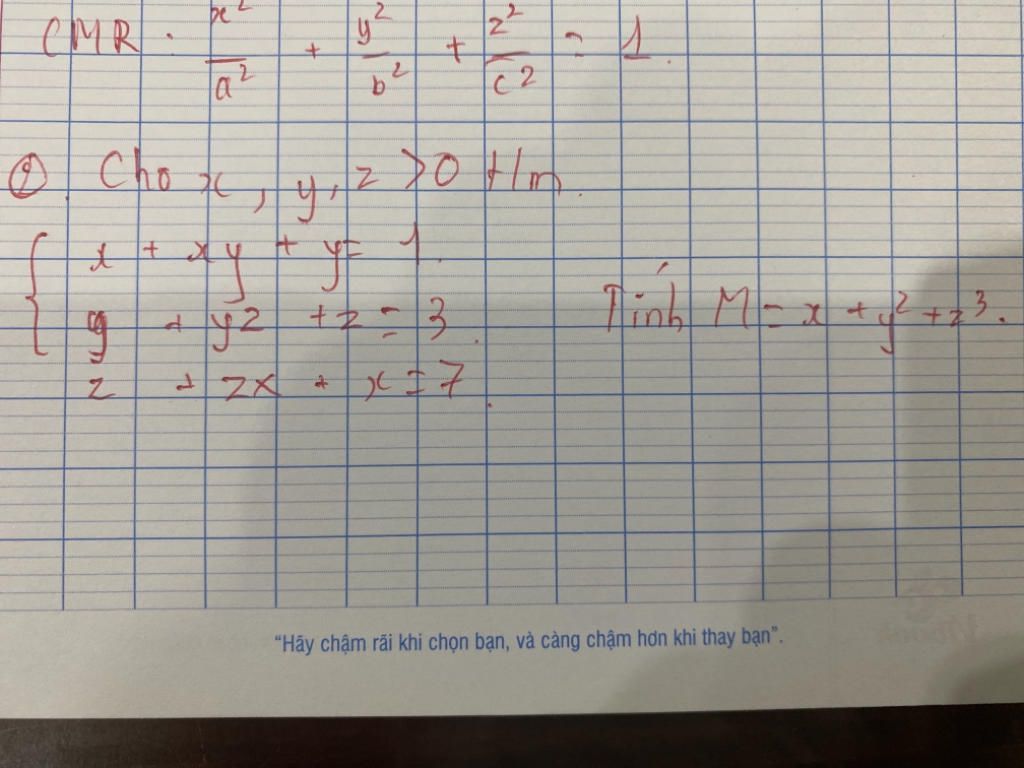 CMR : x²/a² + y²/b² + z²/c² = 1.
② Cho x, y, z > 0 t/m.
{ x + xy + y = 1.
y + yz + z = 3.
z + zx + x = 7.
Tính M = x + y² + z³.
“Hãy chậm rãi khi chọn bạn, và càng chậm hơn khi thay bạn”.